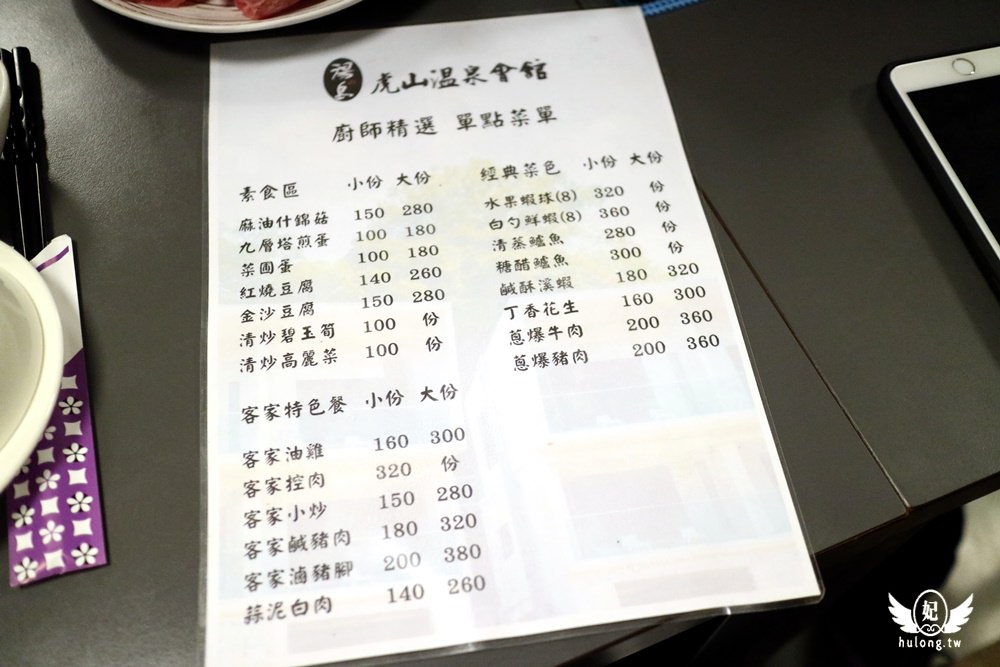 湯泉 虎山温泉會館
廚師精選 單點菜單
素食區 小份 大份
麻油什錦菇 150 280
九層塔煎蛋 100 180
菜圃蛋 100 180
紅燒豆腐 140 260
金沙豆腐 150 280
清炒碧玉筍 100 份
清炒高麗菜 100 份
客家特色餐 小份 大份
客家油雞 160 300
客家控肉 320 份
客家小炒 150 280
客家鹹豬肉 180 320
客家滷豬腳 200 380
蒜泥白肉 140 260
經典菜色 小份 大份
水果蝦球(8) 320 份
白勺鮮蝦(8) 360 份
清蒸鱸魚 280 份
糖醋鱸魚 300 份
鹹酥溪蝦 180 320
丁香花生 160 300
蔥爆牛肉 200 360
蔥爆豬肉 200 360
妃
hulong.tw